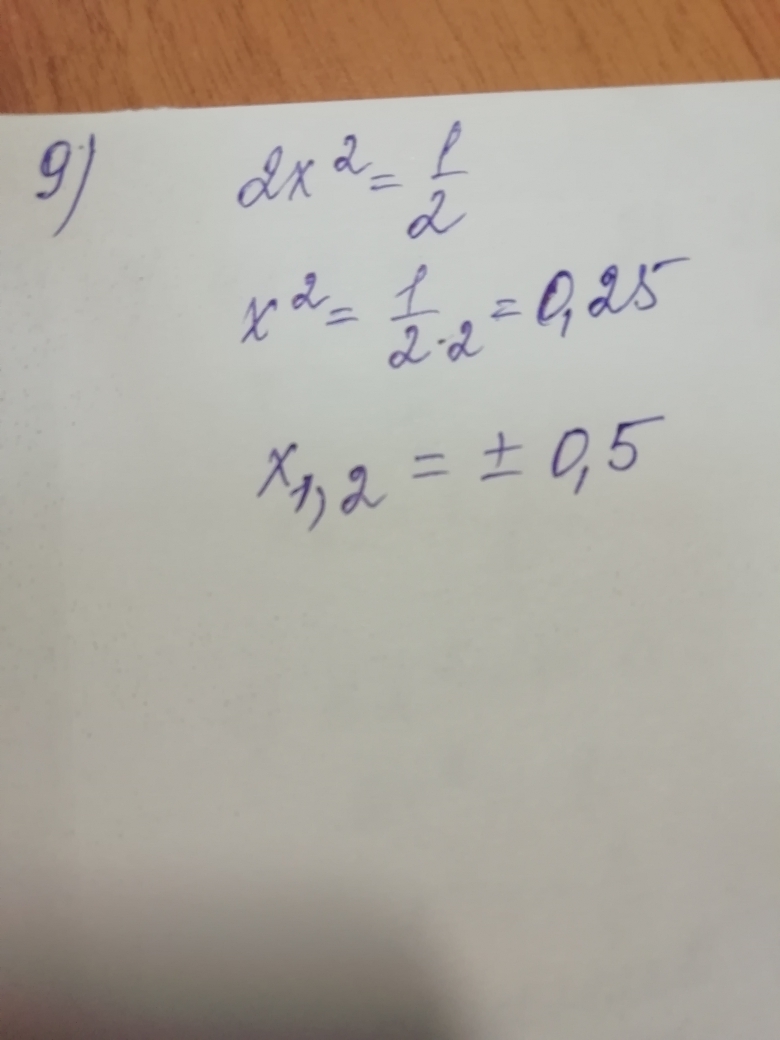 9) 2x² = 1/2
x² = 1/2·2 = 0,25
x₁,₂ = ± 0,5